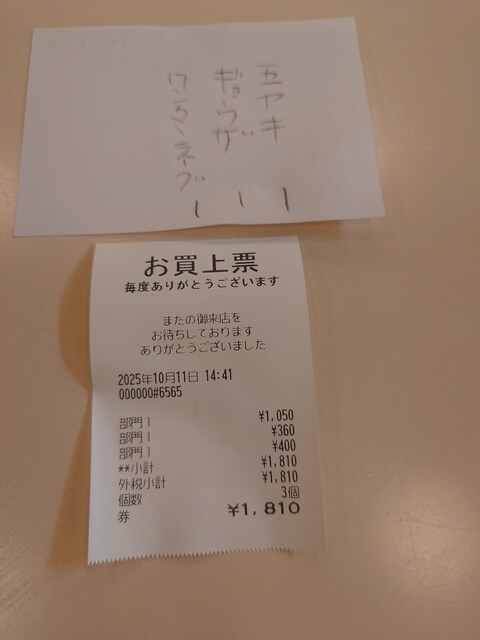 五ヤキ |
ギョウザ |
ワンタン |
お買上票
毎度ありがとうございます
またの御来店を
お待ちしております
ありがとうございました
2025年10月11日 14:41
000000#6565
部門1 ¥1,050
部門1 ¥360
部門1 ¥400
**小計 ¥1,810
外税小計 ¥1,810
個数 3個
券 ¥1,810